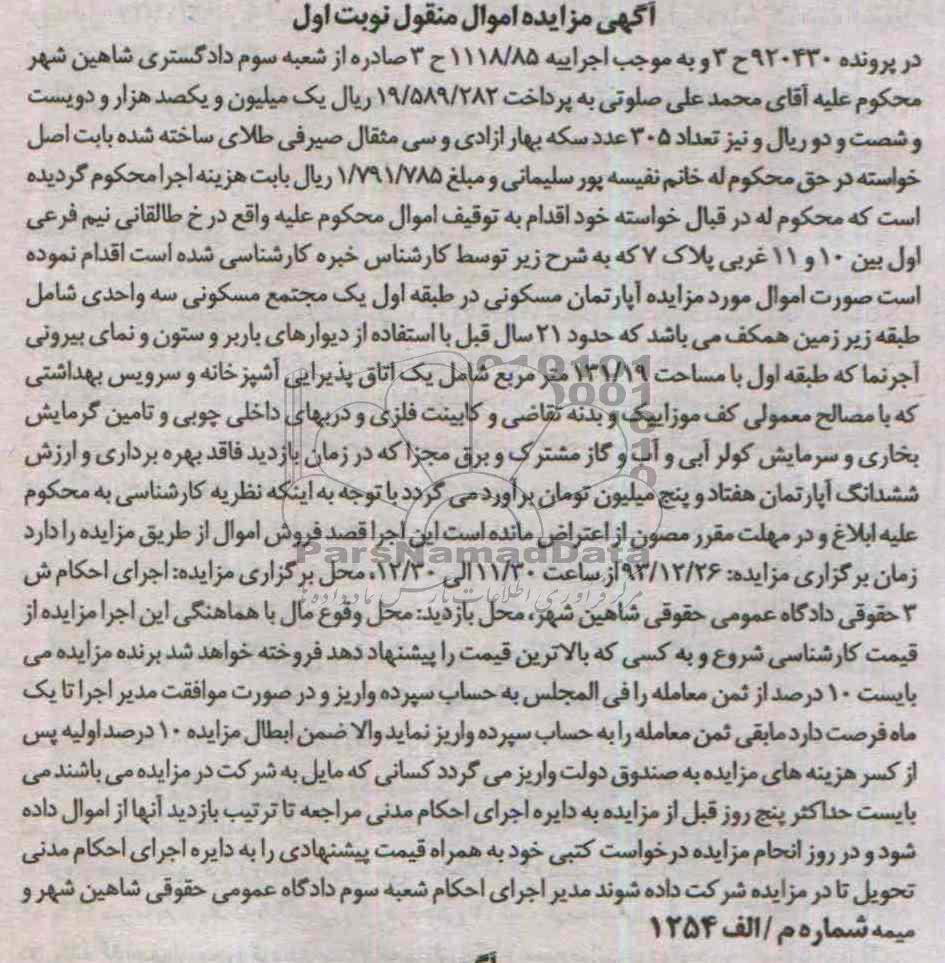 آگهی مزایده اموال منقول نوبت اول
در پرونده ۹۲۰۴۳۰ح ۳ و به موجب اجراییه ۱۱۱۸/۸۵ ح ۳ صادره از شعبه سوم دادگستری شاهین شهر
محکوم علیه آقای محمد علی صلوتی به پرداخت ۱۹/۵۸۹/۲۸۲ ریال یک میلیون و یکصد هزار و دویست
و شصت و دو ریال و نیز تعداد ۳۰۵ عدد سکه بهار ازادی و سی مثقال صیرفی طلای ساخته شده بابت اصل
خواسته در حق محکوم له خانم نفیسه پور سلیمانی و مبلغ ۱/۷۹۱/۷۸۵ ریال بابت هزینه اجرا محکوم گردیده
است که محکوم له در قبال خواسته خود اقدام به توقیف اموال محکوم علیه واقع در خ طالقانی نیم فرعی
اول بین ۱۰ و ۱۱ غربی پلاک ۷ که به شرح زیر توسط کارشناس خبره کارشناسی شده است اقدام نموده
است صورت اموال مورد مزایده آپارتمان مسکونی در طبقه اول یک مجتمع مسکونی سه واحدی شامل
طبقه زیر زمین همکف می باشد که حدود ۲۱ سال قبل با استفاده از دیوارهای باربر و ستون و نمای بیرونی
آجرنما که طبقه اول با مساحت ۱۳۱/۱۹ متر مربع شامل یک اتاق پذیرایی آشپزخانه و سرویس بهداشتی
که با مصالح معمولی کف موزاییک و بدنه نقاضی و کابینت فلزی و دربهای داخلی چوبی و تامین گرمایش
بخاری و سرمایش کولر آبی و آب و گاز مشترک و برق مجزا که در زمان بازدید فاقد بهره برداری و ارزش
ششدانگ آپارتمان هفتاد و پنج میلیون تومان برآورد می گردد با توجه به اینکه نظریه کارشناسی به محکوم
علیه ابلاغ و در مهلت مقرر مصون از اعتراض مانده است این اجرا قصد فروش اموال از طریق مزایده را دارد
ParsNamadData
زمان برگزاری مزایده: ۹۳/۱۲/۲۶ از ساعت ۱۱/۳۰ الی ۱۲/۳۰، محل برگزاری مزایده: اجرای احکام ش
۳ حقوقی دادگاه عمومی حقوقی شاهین شهر، محل بازدید: محل وقوع مال با هماهنگی این اجرا مزایده از
قیمت کارشناسی شروع و به کسی که بالاترین قیمت را پیشنهاد دهد فروخته خواهد شد برنده مزایده می
بایست ۱۰ درصد از ثمن معامله را فی المجلس به حساب سپرده واریز و در صورت موافقت مدیر اجرا تا یک
ماه فرصت دارد مابقی ثمن معامله را به حساب سپرده واریز نماید والا ضمن ابطال مزایده ۱۰ درصد اولیه پس
از کسر هزینه های مزایده به صندوق دولت واریز می گردد کسانی که مایل به شرکت در مزایده می باشند می
بایست حداکثر پنج روز قبل از مزایده به دایره اجرای احکام مدنی مراجعه تا ترتیب بازدید آنها از اموال داده
شود و در روز انجام مزایده درخواست کتبی خود به همراه قیمت پیشنهادی را به دایره اجرای احکام مدنی
تحویل تا در مزایده شرکت داده شوند مدیر اجرای احکام شعبه سوم دادگاه عمومی حقوقی شاهین شهر و
میمه شماره م /الف ۱۲۵۴